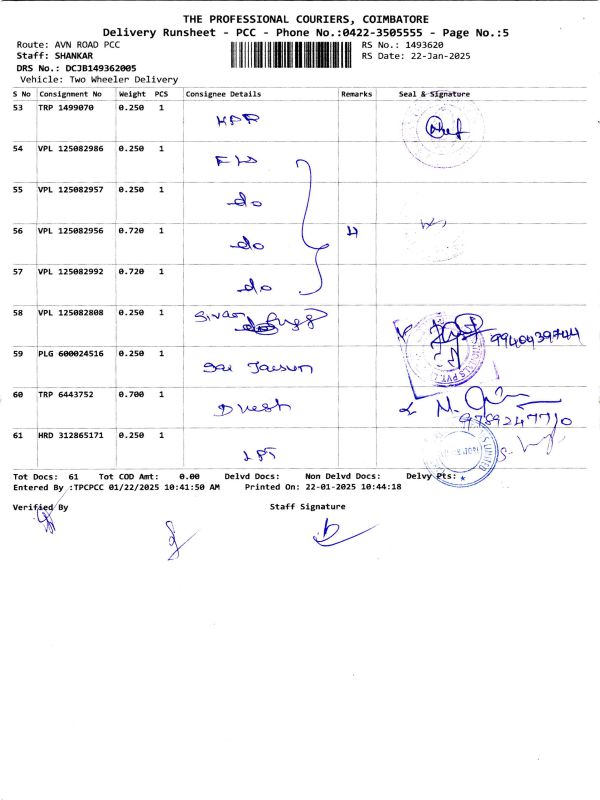 THE PROFESSIONAL COURIERS, COIMBATORE
Delivery Runsheet - PCC - Phone No.:0422-3505555 - Page No.:5
Route: AVN ROAD PCC RS No.: 1493620
Staff: SHANKAR RS Date: 22-Jan-2025
DRS No.: DCJB149362005
Vehicle: Two Wheeler Delivery
S No Consignment No Weight PCS Consignee Details Remarks Seal & Signature
53 TRP 1499070 0.250 1 KPR
54 VPL 125082986 0.250 1
55 VPL 125082957 0.250 1 do
56 VPL 125082956 0.720 1 do 4
57 VPL 125082992 0.720 1 do
58 VPL 125082808 0.250 1 9940439744
59 PLG 600024516 0.250 1 Sai
60 TRP 6443752 0.700 1 M.
9789247710
61 HRD 312865171 0.250 1
Tot Docs: 61 Tot COD Amt: 0.00 Delvd Docs: Non Delvd Docs: Delvy Pts:
Entered By :TPCPCC 01/22/2025 10:41:50 AM Printed On: 22-01-2025 10:44:18
Verified By Staff Signature